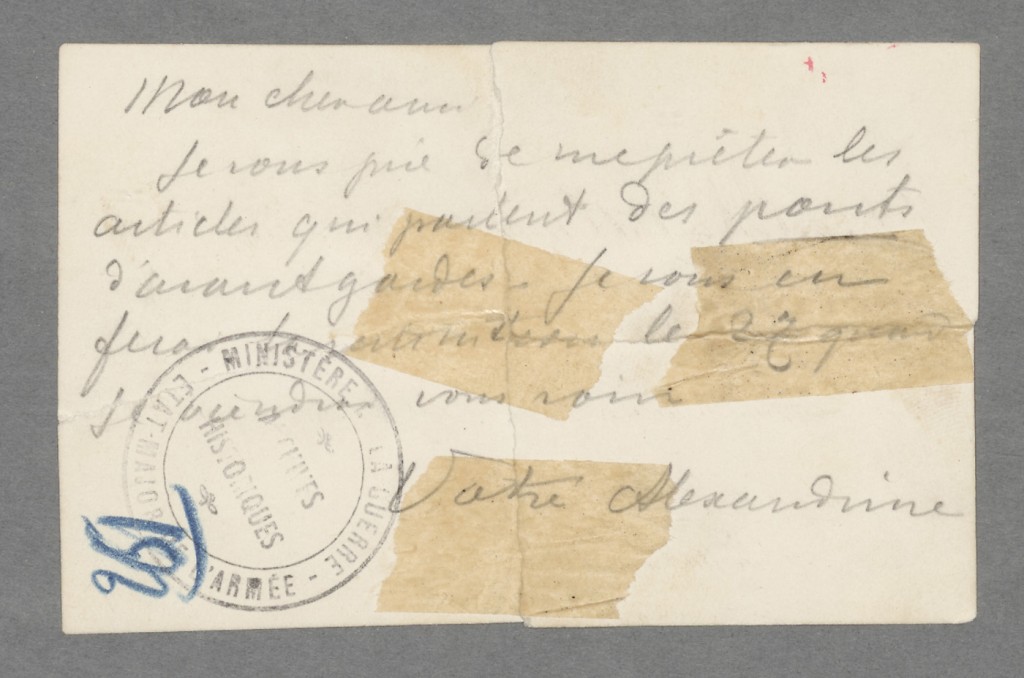 Mon cher ami
Je vous prie de me prêter les
articles qui parlent des ponts
d'avant gardes. Je vous en
ferai le 27 quand
je viendrai vous voir
Votre Alexandrine
MINISTÈRE LA GUERRE - ÉTAT-MAJOR L'ARMÉE -
HISTORIQUES
261